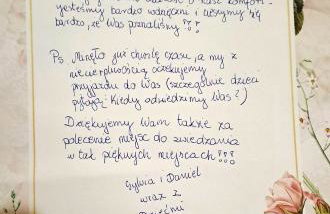 jesteśmy bardzo wdzięczni i cieszymy się
bardzo, że Was poznaliśmy !!!
Ps. Minęło już chwilę czasu, a my z
niecierpliwością oczekujemy
przyjazdu do Was (szczególnie dzieci
pytają: Kiedy odwiedzimy Was?)
Dziękujemy Wam także za
polecenie miejsc do zwiedzania
w tak pięknych miejscach !!!
Sylwia i Daniel
wraz z
Dziećmi